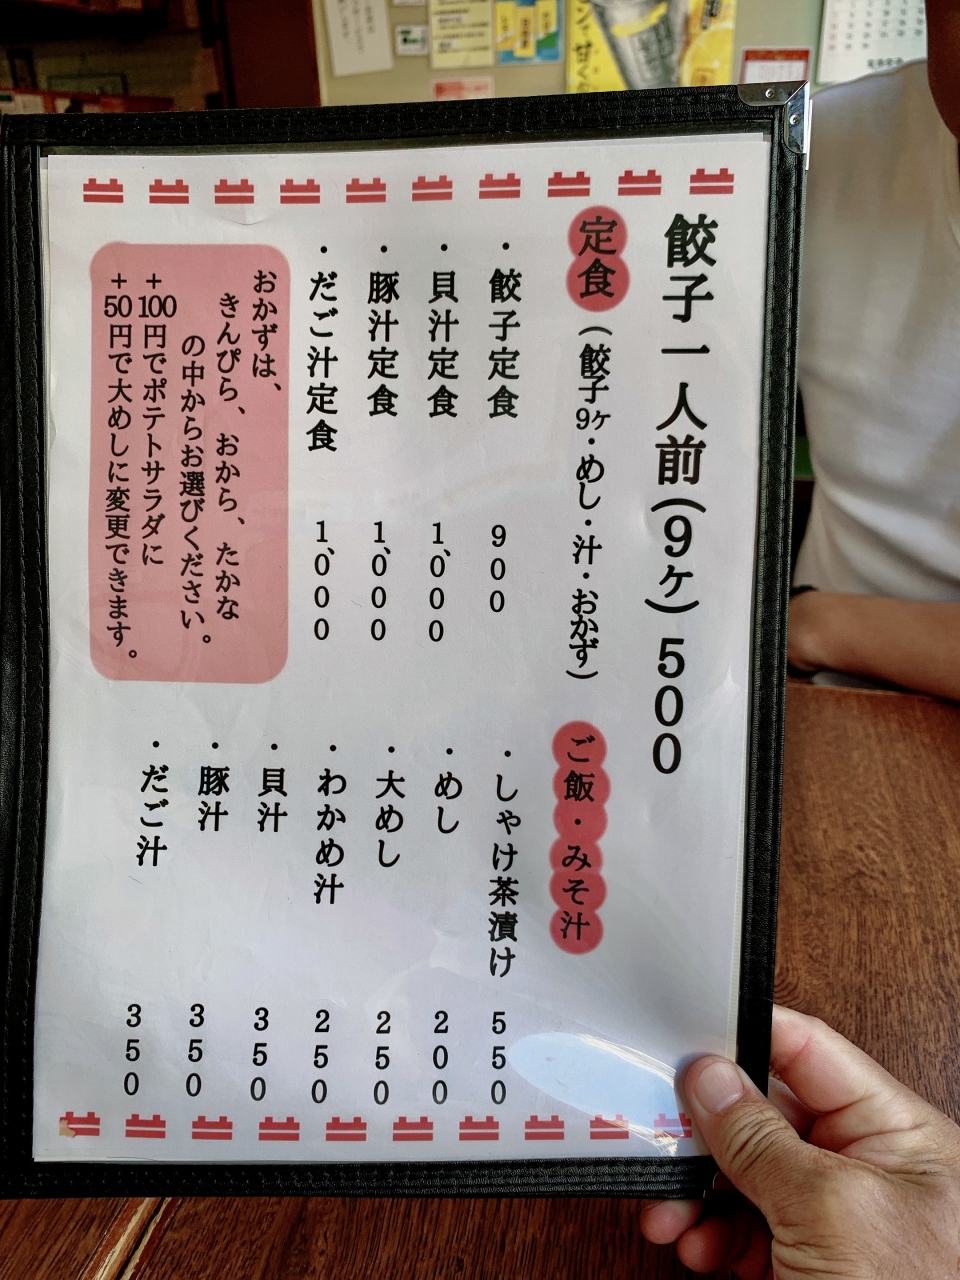 餃子一人前(9ヶ) 500
定食 (餃子9ヶ・めし・汁・おかず)
・餃子定食 900
・貝汁定食 1,000
・豚汁定食 1,000
・だご汁定食 1,000
おかずは、
きんぴら、おから、たかな
の中からお選びください。
+100円でポテトサラダに
+50円で大めしに変更できます。
ご飯・みそ汁
・しゃけ茶漬け 550
・めし 200
・大めし 250
・わかめ汁 250
・貝汁 350
・豚汁 350
・だご汁 350